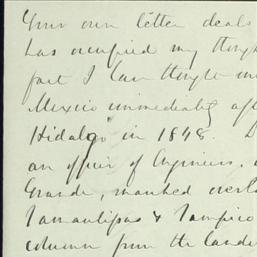 Your own letter deals
has occupied my though
fact I have thought
Mexico immediately aft
Hidalgo" in 1848.
an officer of Engineers,
Grande, marched overla
Tamaulipas & Tampico
column from the lande